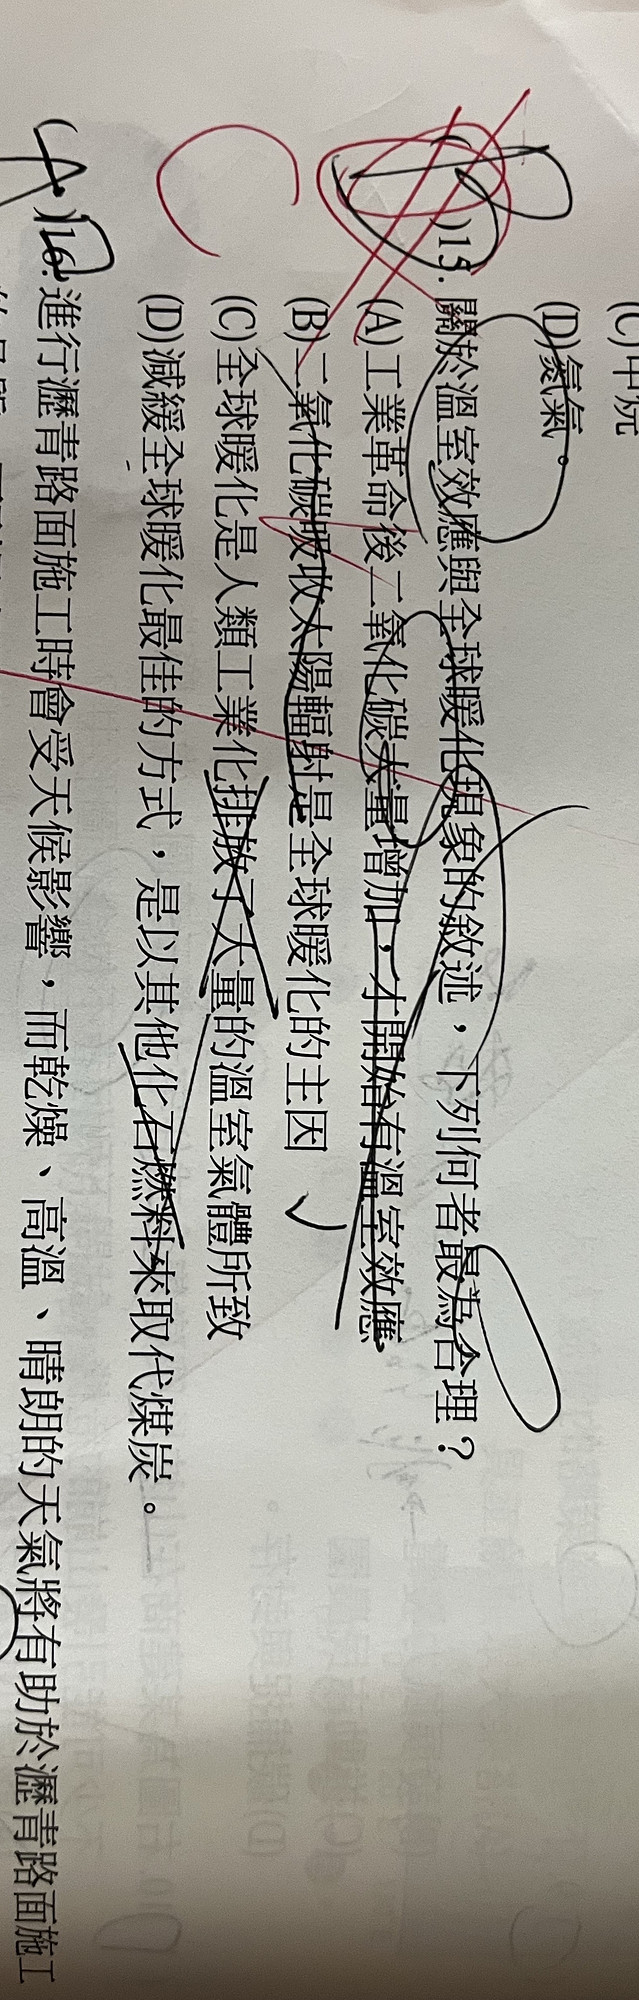 (C)甲烷
(D)氮氣。
(B)15. 關於溫室效應與全球暖化現象的敘述，下列何者最為合理？
(A)工業革命後二氧化碳大量增加，才開始有溫室效應
(B)二氧化碳吸收太陽輻射是全球暖化的主因
(C)全球暖化是人類工業化排放了大量的溫室氣體所致
(D)減緩全球暖化最佳的方式，是以其他化石燃料來取代煤炭。
C
(A)16. 進行瀝青路面施工時會受天候影響，而乾燥、高溫、晴朗的天氣將有助於瀝青路面施工